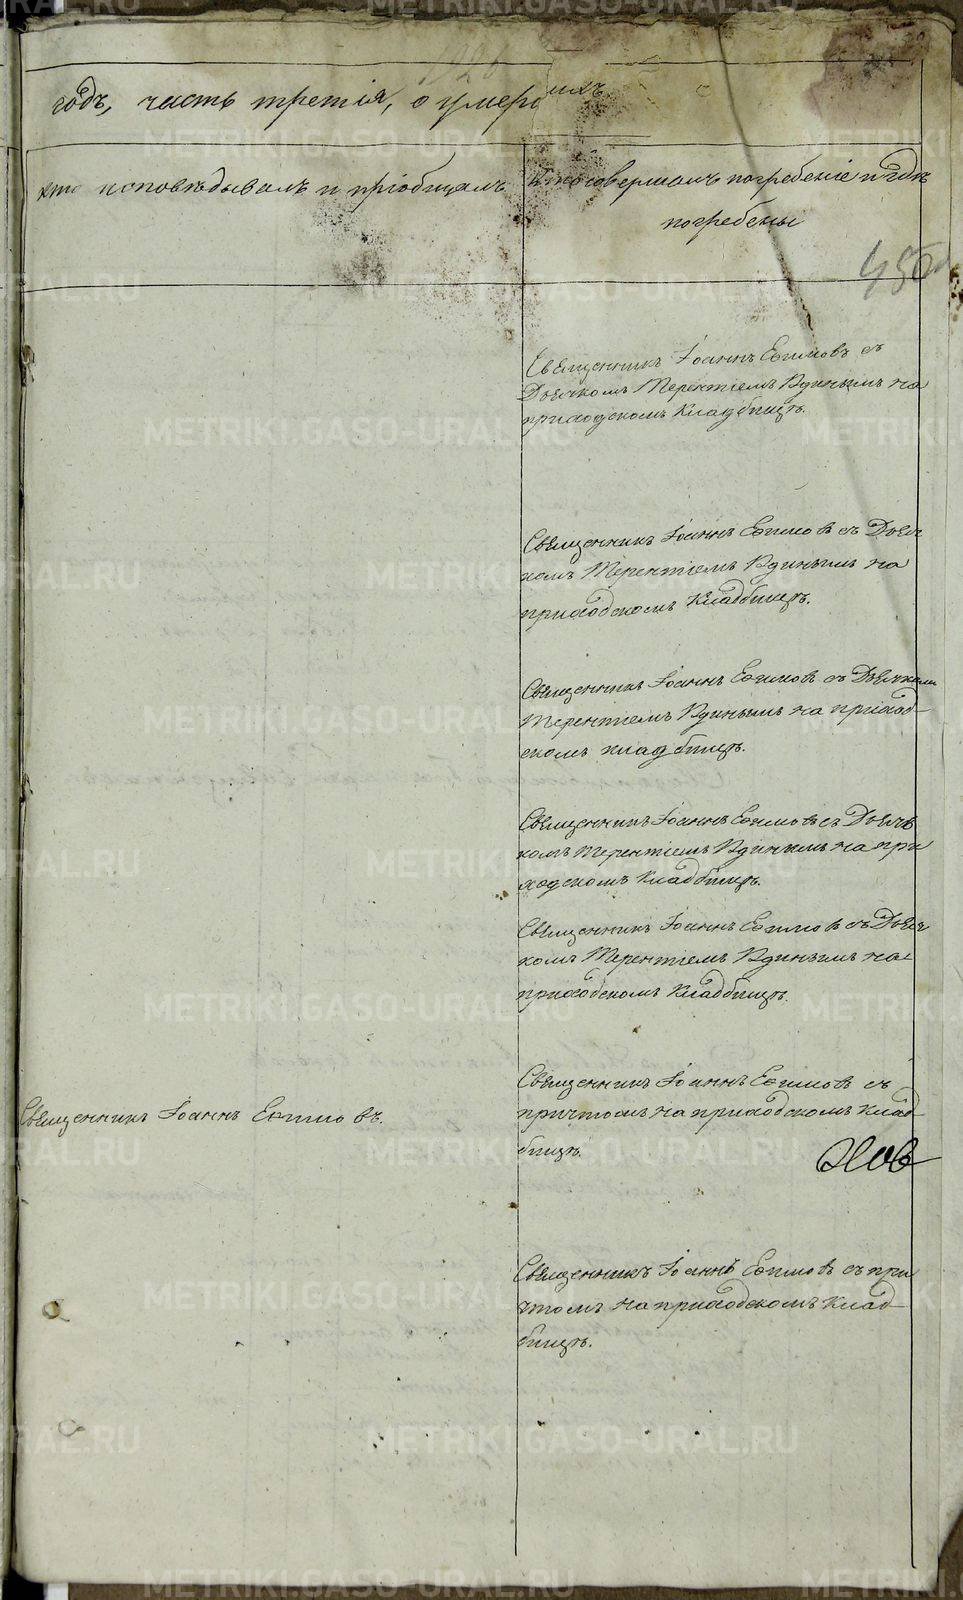 годъ, часть третія, о умершихъ
кто исповѣдывалъ и пріобщалъ
кто совершалъ погребеніе и гдѣ
погребены
Священникъ Іоаннъ Еѳимовъ съ
Дьячкомъ Терентіемъ Ядинымъ на
приходскомъ Кладбищѣ.
Священникъ Іоаннъ Еѳимовъ съ Дьяч
комъ Терентіемъ Ядинымъ на
приходскомъ Кладбищѣ.
Священникъ Іоаннъ Еѳимовъ съ Дьячкомъ
Терентіемъ Ядинымъ на приход
скомъ кладбищѣ.
Священникъ Іоаннъ Еѳимовъ съ Дьяч
комъ Терентіемъ Ядинымъ на при
ходскомъ Кладбищѣ.
Священникъ Іоаннъ Еѳимовъ съ Дьяч
комъ Терентіемъ Ядинымъ на
приходскомъ Кладбищѣ.
Священникъ Іоаннъ Еѳимовъ.
Священникъ Іоаннъ Еѳимовъ съ
причтомъ на приходскомъ Клад
бищѣ.
Священникъ Іоаннъ Еѳимовъ съ при
чтомъ на приходскомъ Клад
бищѣ.
METRIKI.GASO-URAL.RU